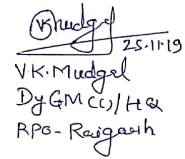 Kmudgel
25.11.19
V.K. Mudgel
Dy GM (C)/HQ
RPG- Raigarh